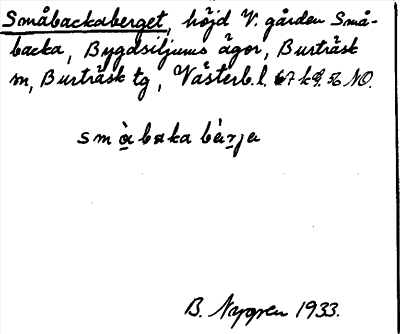 Småbackaberget, höjd V. gården Små-
backa, Bygdsiljums ägor, Burträsk
m, Burträsk tg, Västerb. l. 67 kg. 56 NO.
småbaka bærja
B. Nygren 1933.